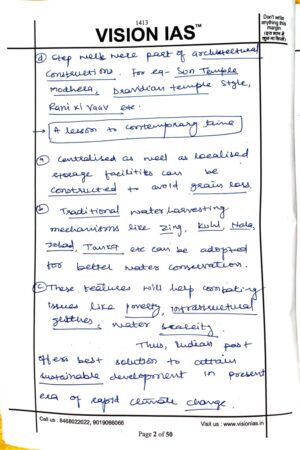 1413
VISION IAS™
Don't write
anything this
margin
(इस भाग में
कुछ ना लिखें)
d) Step wells were part of architectural
constructions. For eg - Sun Temple
Modhera, Dravidian temple style,
Rani ki vaav etc.
→ A lesson to contemporary time
a) Centralised as well as localised
storage facilities can be
constructed to avoid grain loss.
b) Traditional water harvesting
mechanisms like Zing, Kuhl, Nala,
Johad, Tanka etc can be adopted
for better water conservation.
c) These features will help combating
issues like poverty, infrastructural
glitches, water scarcity.
Thus, Indian past
offers best solution to attain
sustainable development in present
era of rapid climate change.
Call us : 8468022022, 9019066066
Visit us : www.visionias.in
Page 2 of 50